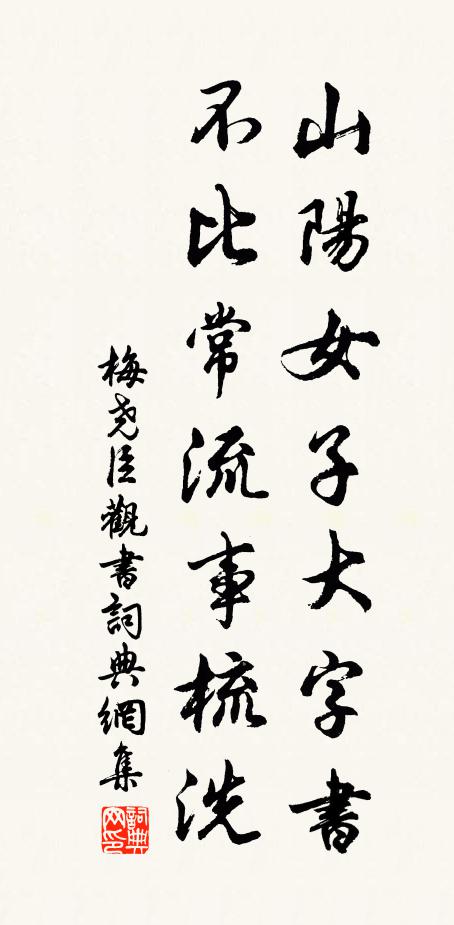 山陽女子大字書
不比常流事梳洗
梅堯臣觀書詞典網集
詞典网印